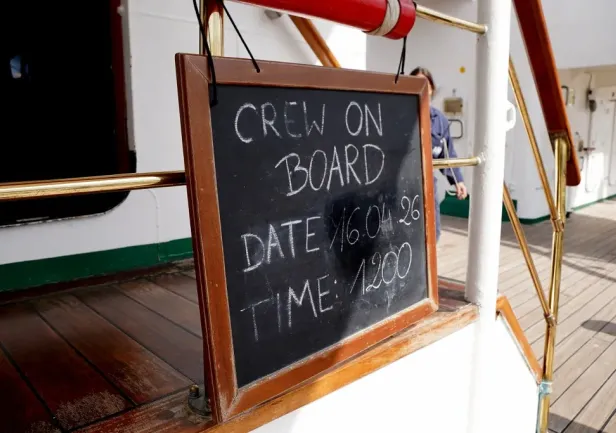 CREW ON
BOARD
DATE 16.04 26
TIME: 1200